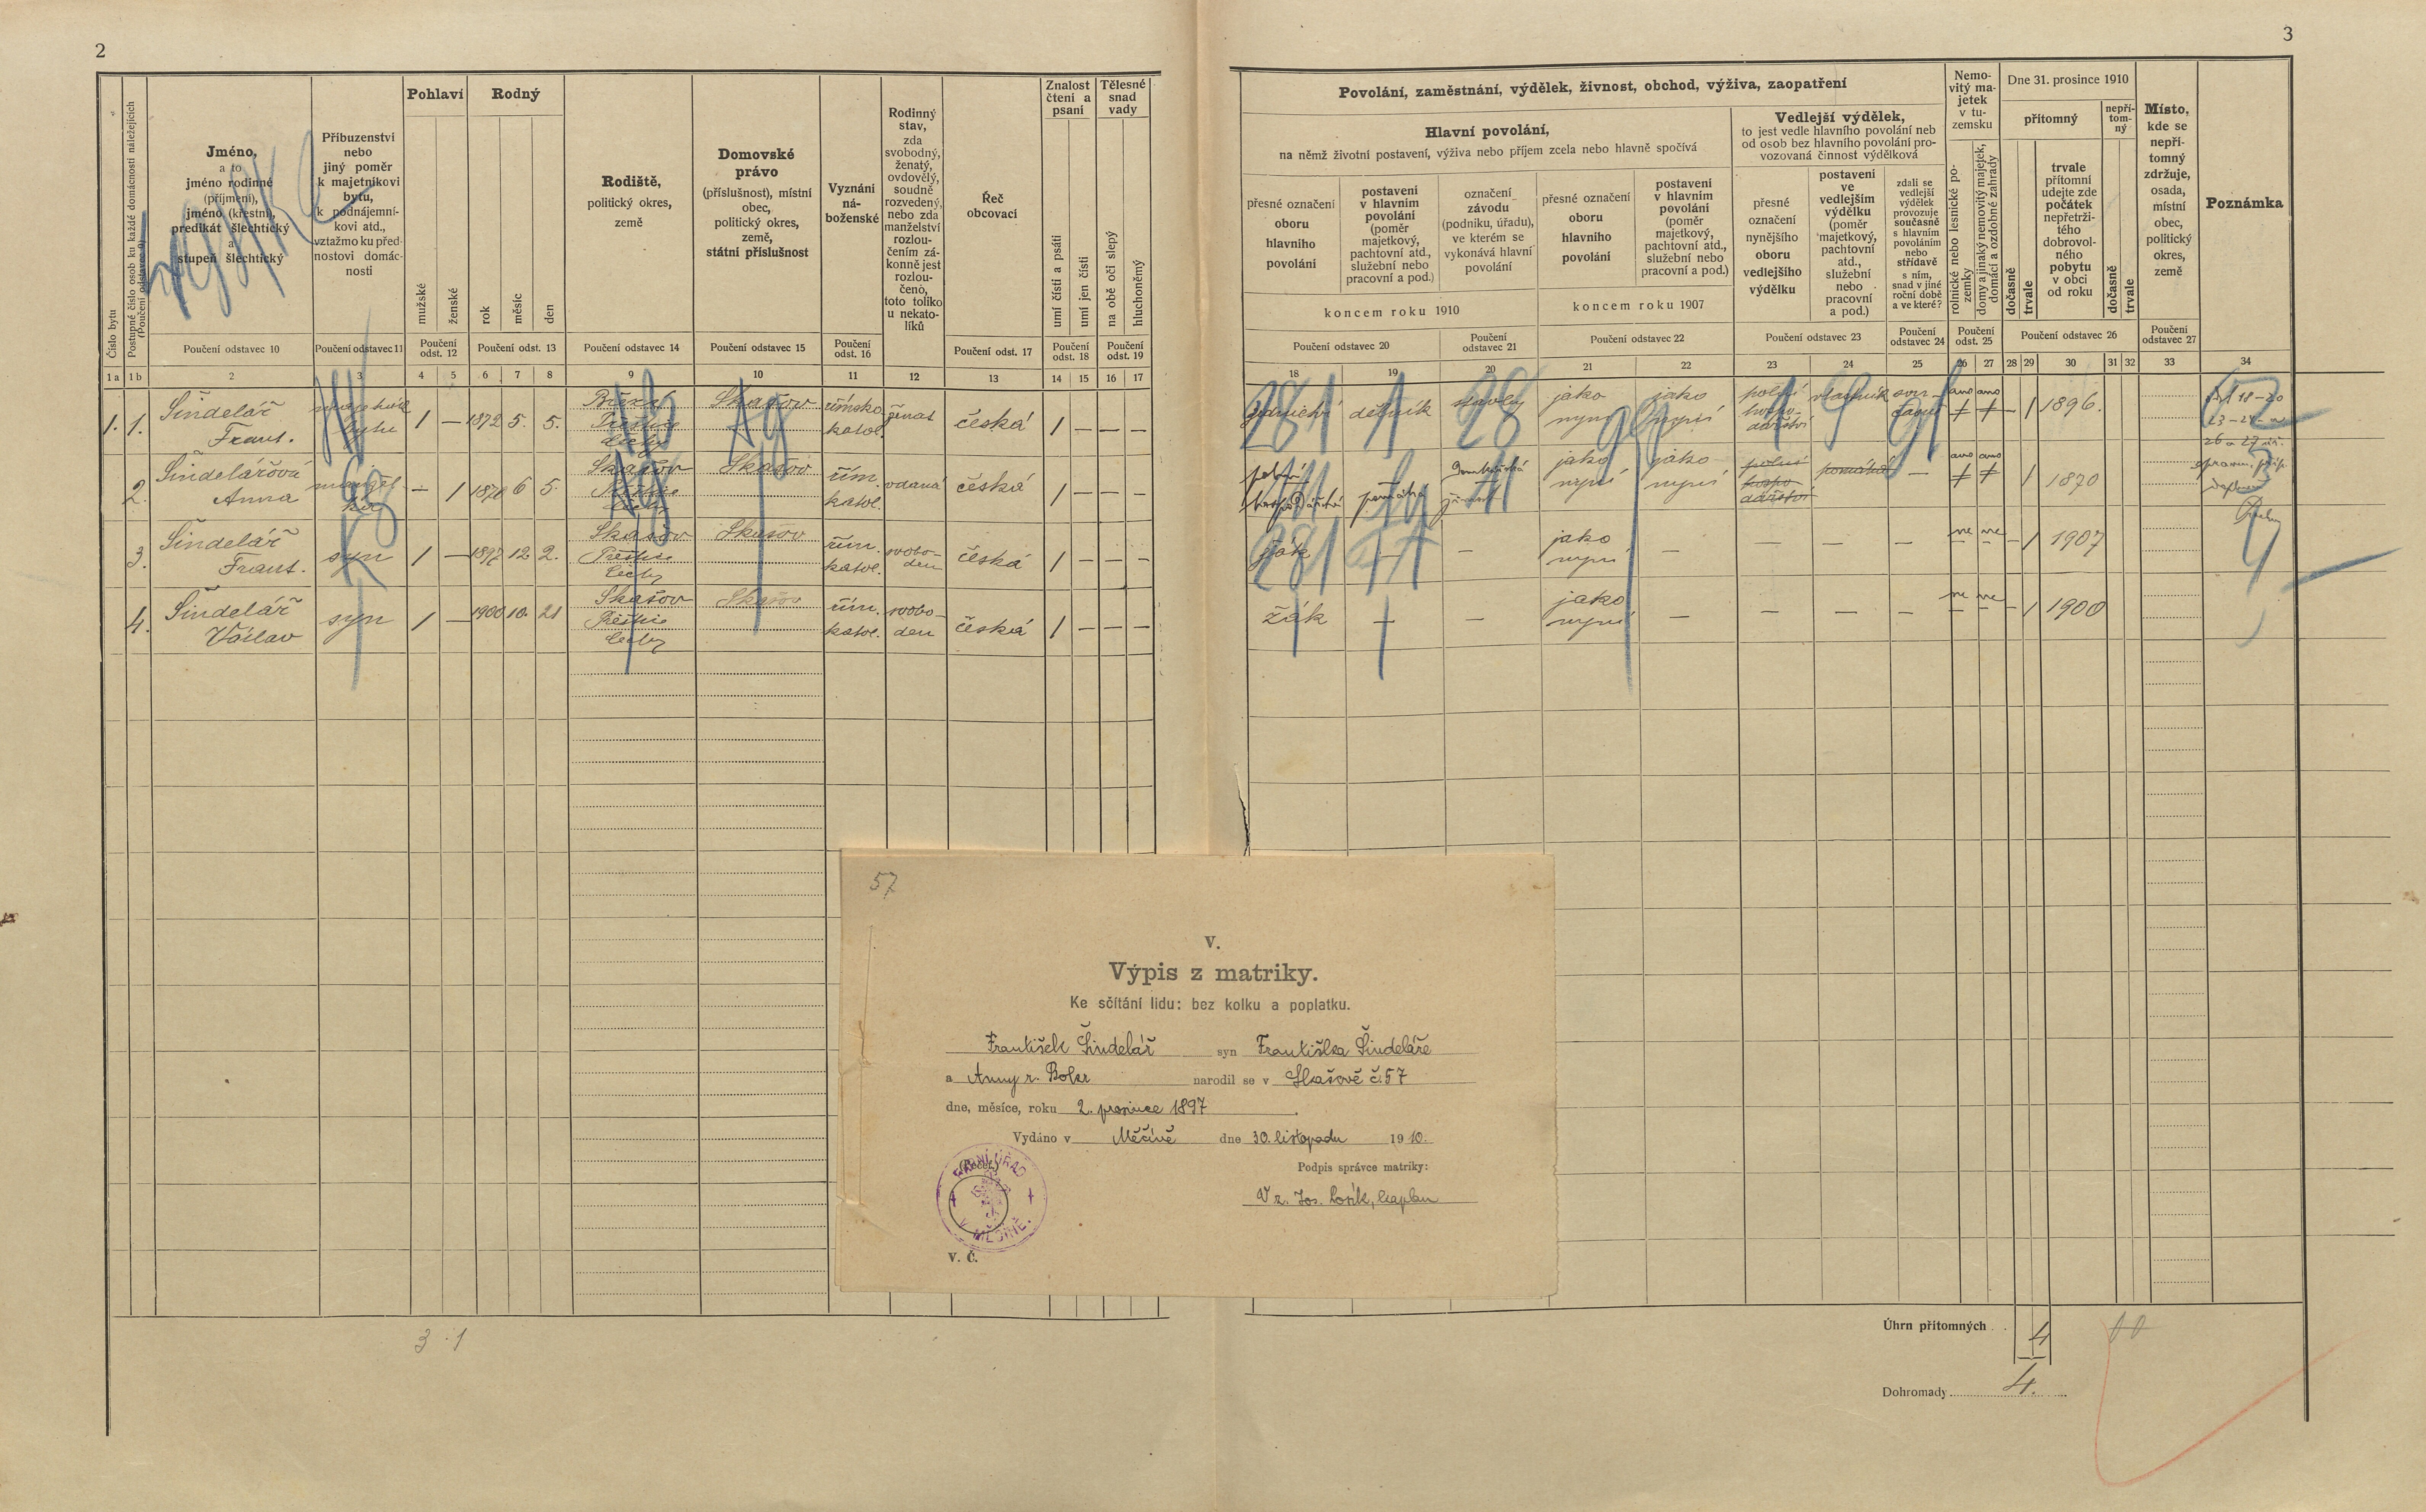 2
3
Číslo bytu
Postupné číslo osob ku každé domácnosti náležejících
(Poučení odstavec 9)
Jméno,
a to
jméno rodinné
(příjmení),
jméno (křestní),
predikát šlechtický
a
stupeň šlechtický
Poučení odstavec 10
Příbuzenství
nebo
jiný poměr
k majetníkovi
bytu,
k podnájemní-
kovi atd.,
vztažmo ku před-
nostovi domác-
nosti
Poučení odstavec 11
Pohlaví
mužské
ženské
Poučení
odst. 12
Rodný
rok
měsíc
den
Poučení odst. 13
Rodiště,
politický okres,
země
Poučení odstavec 14
Domovské
právo
(příslušnost), místní
obec,
politický okres,
země,
státní příslušnost
Poučení odstavec 15
Vyznání
ná-
boženské
Poučení
odst. 16
Rodinný
stav,
zda
svobodný,
ženatý,
ovdovělý,
soudně
rozvedený,
nebo zda
manželství
rozlou-
čením zá-
konně jest
rozlou-
čeno,
toto toliko
u nekato-
líků
Řeč
obcovací
Poučení odst. 17
Znalost
čtení a
psaní
umí čísti a psáti
umí jen čísti
Poučení
odst. 18
Tělesné
snad
vady
na obě oči slepý
hluchoněmý
Poučení
odst. 19
Povolání, zaměstnání, výdělek, živnost, obchod, výživa, zaopatření
Hlavní povolání,
na němž životní postavení, výživa nebo příjem zcela nebo hlavně spočívá
přesné označení
oboru
hlavního
povolání
postavení
v hlavním
povolání
(poměr
majetkový,
pachtovní atd.,
služební nebo
pracovní a pod.)
označení
závodu
(podniku, úřadu),
ve kterém se
vykonává hlavní
povolání
přesné označení
oboru
hlavního
povolání
postavení
v hlavním
povolání
(poměr
majetkový,
pachtovní atd.,
služební nebo
pracovní a pod.)
koncem roku 1910
koncem roku 1907
Poučení odstavec 20
Poučení
odstavec 21
Poučení odstavec 22
Vedlejší výdělek,
to jest vedle hlavního povolání neb
od osob bez hlavního povolání pro-
vozovaná činnost výdělková
přesné
označení
nynějšího
oboru
vedlejšího
výdělku
postavení
ve
vedlejším
výdělku
(poměr
majetkový,
pachtovní
atd.,
služební
nebo
pracovní
a pod.)
zdali se
vedlejší
výdělek
provozuje
současně
s hlavním
povoláním
nebo
střídavě
s ním,
snad v jiné
roční době
a ve které?
Poučení odstavec 23
Poučení
odstavec 24
Nemo-
vitý ma-
jetek
v tu-
zemsku
rolnické nebo lesnické po-
zemky
domy a jinaký nemovitý majetek,
domácí a ozdobné zahrady
Poučení
odst. 25
Dne 31. prosince 1910
přítomný
nepří-
tom-
ný
dočasně
trvale
trvale
přítomní
udejte zde
počátek
nepřetrži-
tého
dobrovol-
ného
pobytu
v obci
od roku
dočasně
trvale
Poučení odstavec 26
Místo,
kde se
nepří-
tomný
zdržuje,
osada,
místní
obec,
politický
okres,
země
Poučení
odstavec 27
Poznámka
1a 1b 2 3 4 5 6 7 8 9 10 11 12 13 14 15 16 17
18 19 20 21 22 23 24 25 26 27 28 29 30 31 32 33 34
1. 1. Šindelář Frant. majetník bytu 1 — 1872 5. 5. Přeštice Čechy Skašov římsko katol. ženat česká 1 — — —
dělník stavby jako nyní jako nyní polní hospo- dářství vlastník sou- časně ano ano — 1 1896.
2. Šindelářová Anna manžel- ka — 1 6 5. Skašov Přeštice Čechy Skašov řím. katol. vdaná česká 1 — — —
pomáhá jako nyní jako nyní polní hospo- dářství pomáhá — ano ano 1 1870
3. Šindelář Frant. syn 1 — 1897 12 2. Skašov Přeštice Čechy Skašov řím. katol. svobo- den česká 1 — — —
žák — — jako nyní — — — — ne ne — 1 1907
4. Šindelář Václav syn 1 — 1900 10. 21 Skašov Přeštice Čechy Skašov řím. katol. svobo- den česká 1 — — —
žák — — jako nyní — — — — ne ne — 1 1900
57
V.
Výpis z matriky.
Ke sčítání lidu: bez kolku a poplatku.
František Šindelář syn Františka Šindeláře
a Anny r. narodil se v Skašově č. 57
dne, měsíce, roku 2. prosince 1897.
Vydáno v Měčíně dne 30. listopadu 1910.
(Pečeť.)
FARNÍ ÚŘAD
V MĚČÍNĚ.
Podpis správce matriky:
V z. Jos. kaplan
V. Č.
3 · 1
Úhrn přítomných . . 4
Dohromady 4.